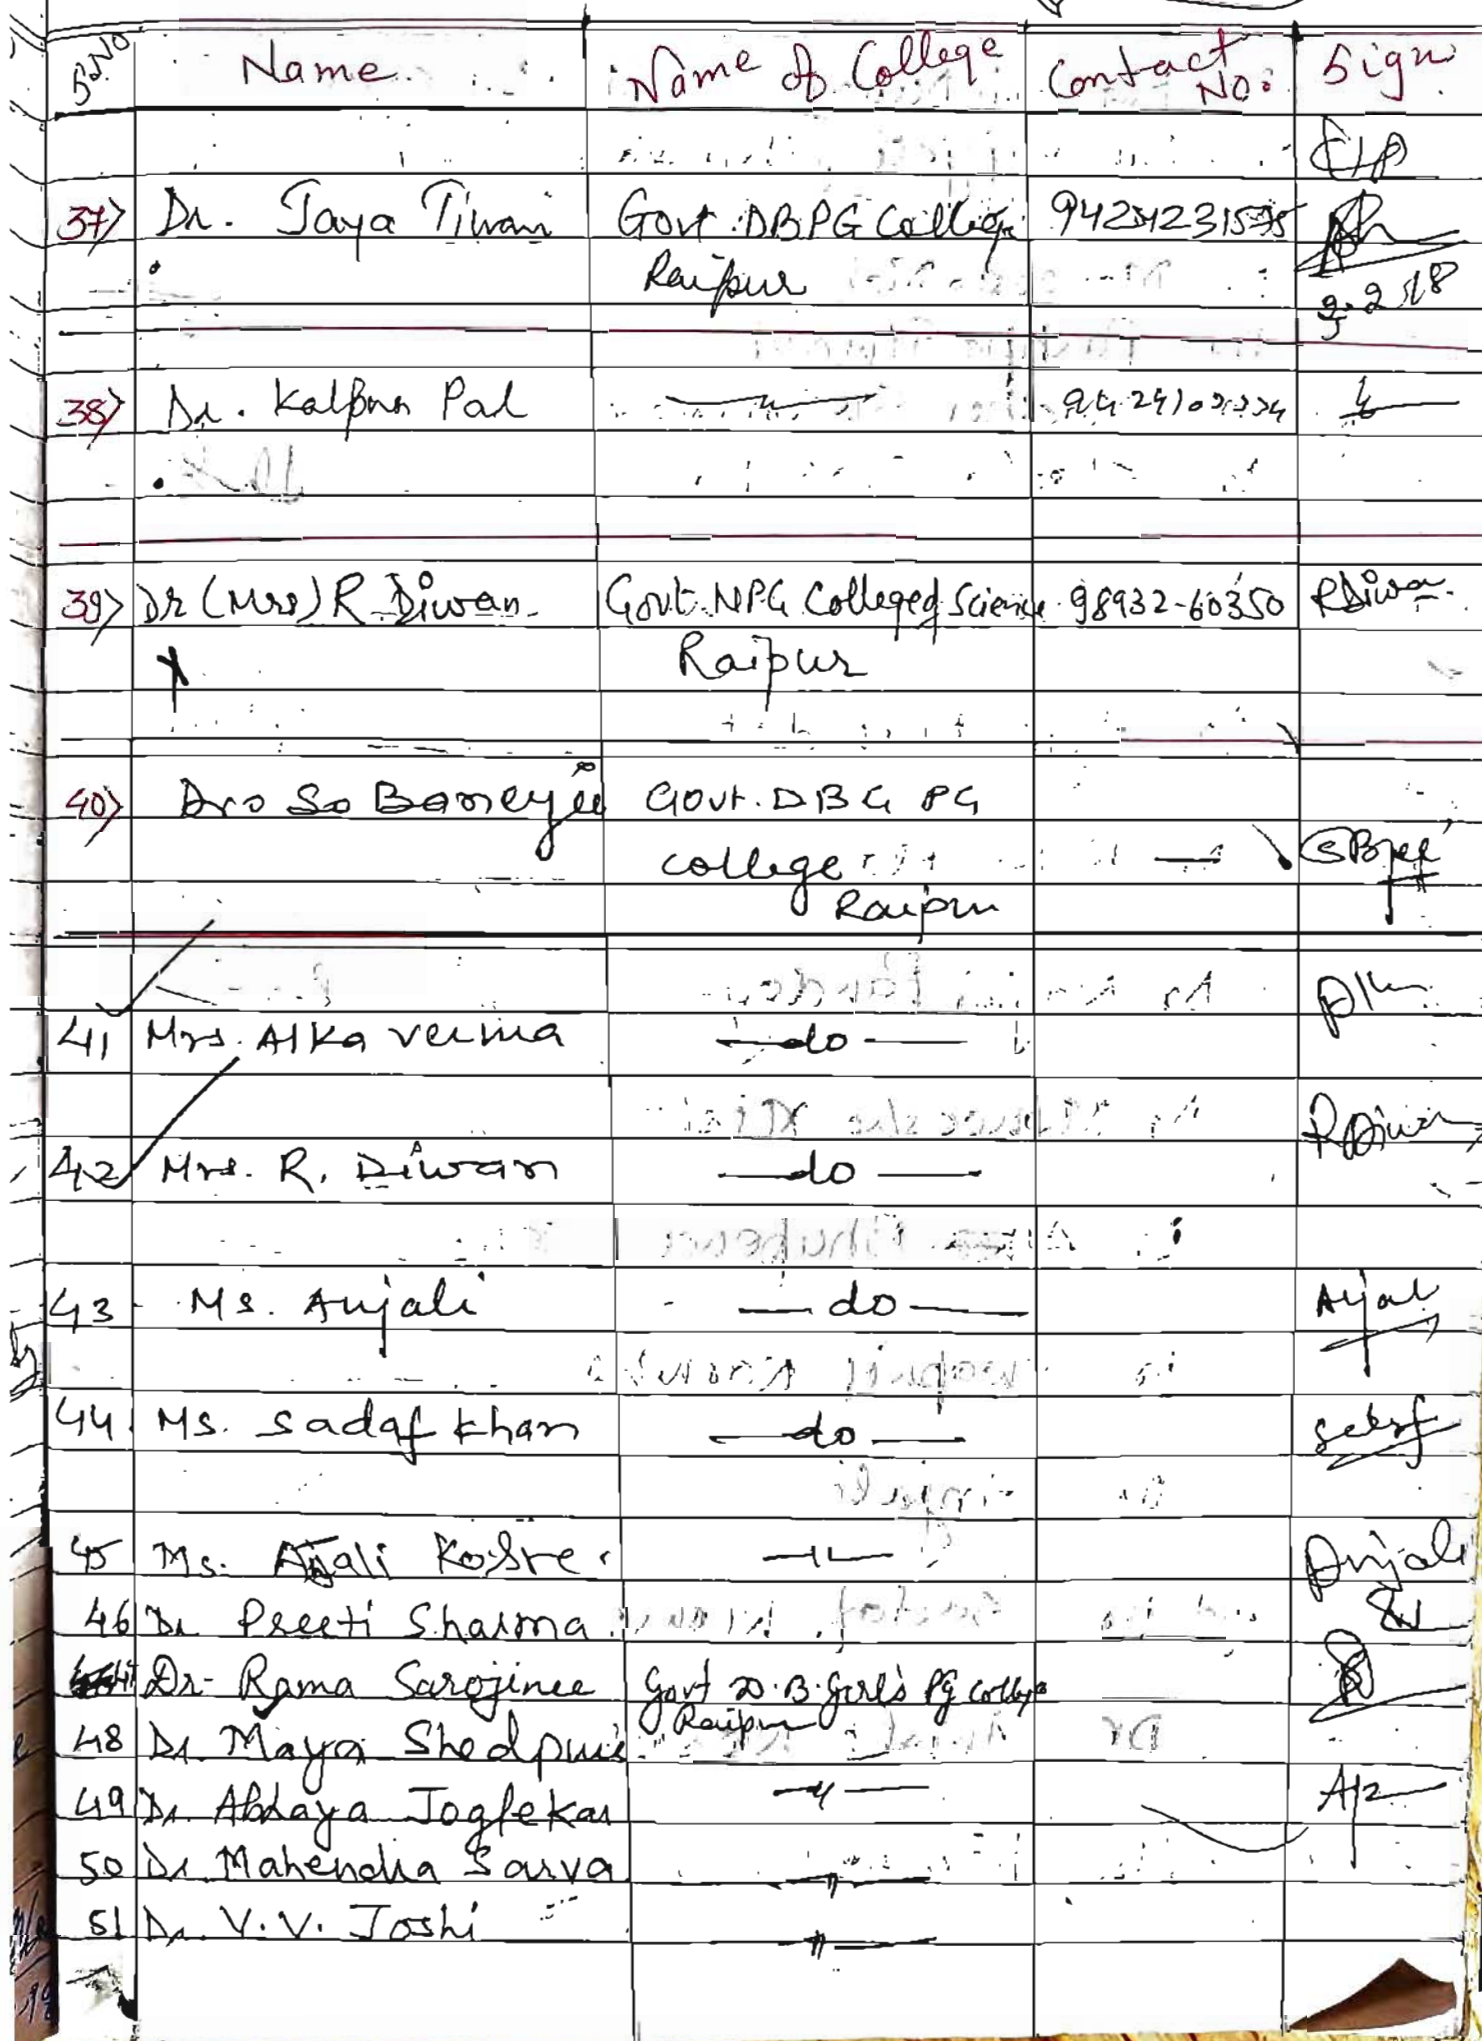 S.No Name Name of College Contact No. Sign
37) Dr. Jaya Tiwari Govt. DBPG College
Raipur
38) Dr. Kalpna Pal
39) Dr (Mrs) R. Diwan Govt. NPG College of Science 98932-60350 RDiwan
Raipur
40) Dr. S. Banerjee Govt. DBG PG
college
Raipur
41 Mrs. Alka Verma —do—
42 Mrs. R. Diwan —do— RDiwan
43 Ms. Anjali —do—
44. Ms. Sadaf Khan —do—
45 Ms. Anjali Kosre. —11— Anjali
46 Dr Preeti Sharma
Dr. Rama Sarojinee Govt D.B. Girl's PG College
Raipur
48 Dr. Maya Shedpure
49 Dr. Abhaya Joglekar —11—
50 Dr Mahendra Sarva —11—
51 Dr. V.V. Joshi —11—